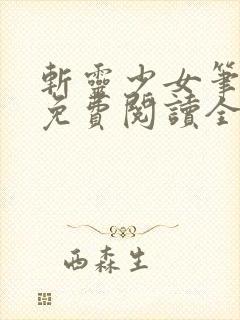 斬靈少女筆
免費閱讀全
西森生